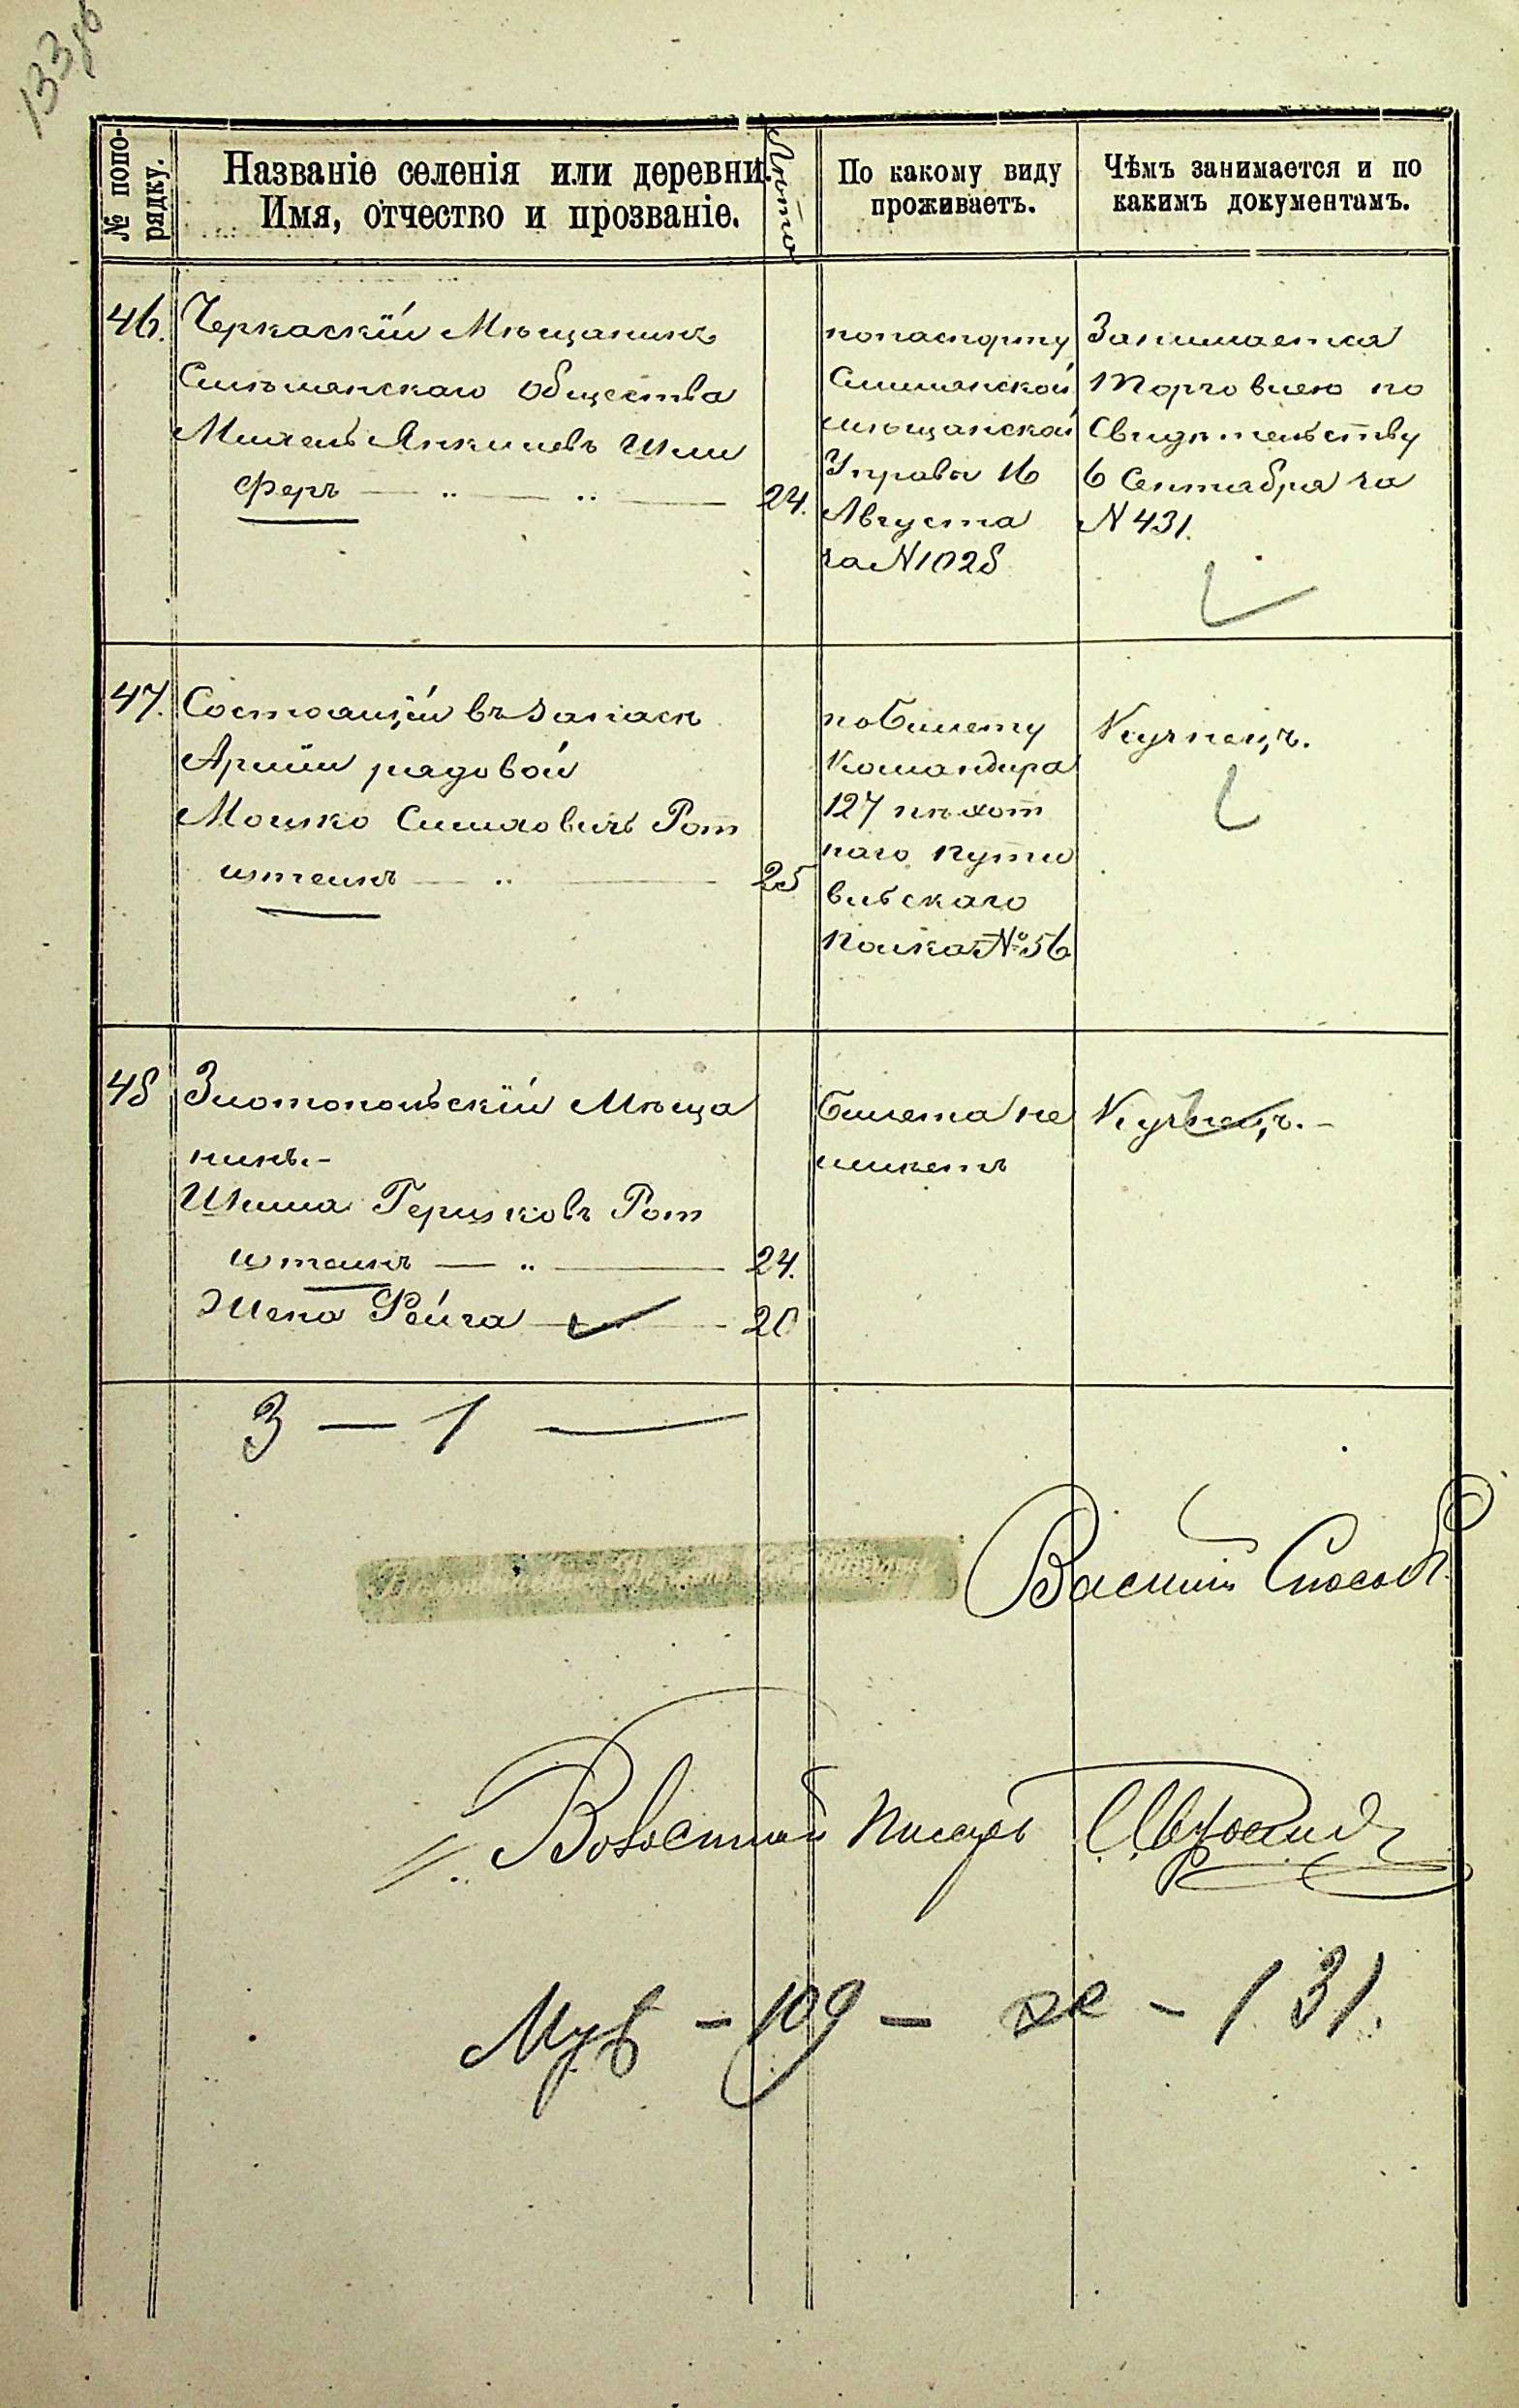 133об
№ попо-
рядку.
Названіе селенія или деревни.
Имя, отчество и прозваніе.
Лѣта
По какому виду
проживаетъ.
Чѣмъ занимается и по
какимъ документамъ.
46.
Черкаскій Мѣщанинъ
Смѣлянскаго Общества
Янкилевъ Шли
феръ — „ — „ — 24.
попаспорту
мѣщанской
Управы 16
Августа
за N 1028
Занимается
торговлею по
Свидѣтельству
6 Сентября за
N 431.
47.
Состоящій въ запасѣ
Арміи рядовой
Мошко Симховичъ Рот
штейнъ — „ — 25
по билету
Командира
127 пѣхот
наго Пути
вльскаго
полка № 56
Кузнецъ.
48
Златопольскій Мѣща
нинъ.-
Шлима Гершковъ Рот
штейнъ — „ — 24.
Жена Фейга — 20
билета не
имѣетъ
Кузнецъ.-
3 — 1 —
Василій
Волостной Писарь
Муж - 109 - ж - 131.